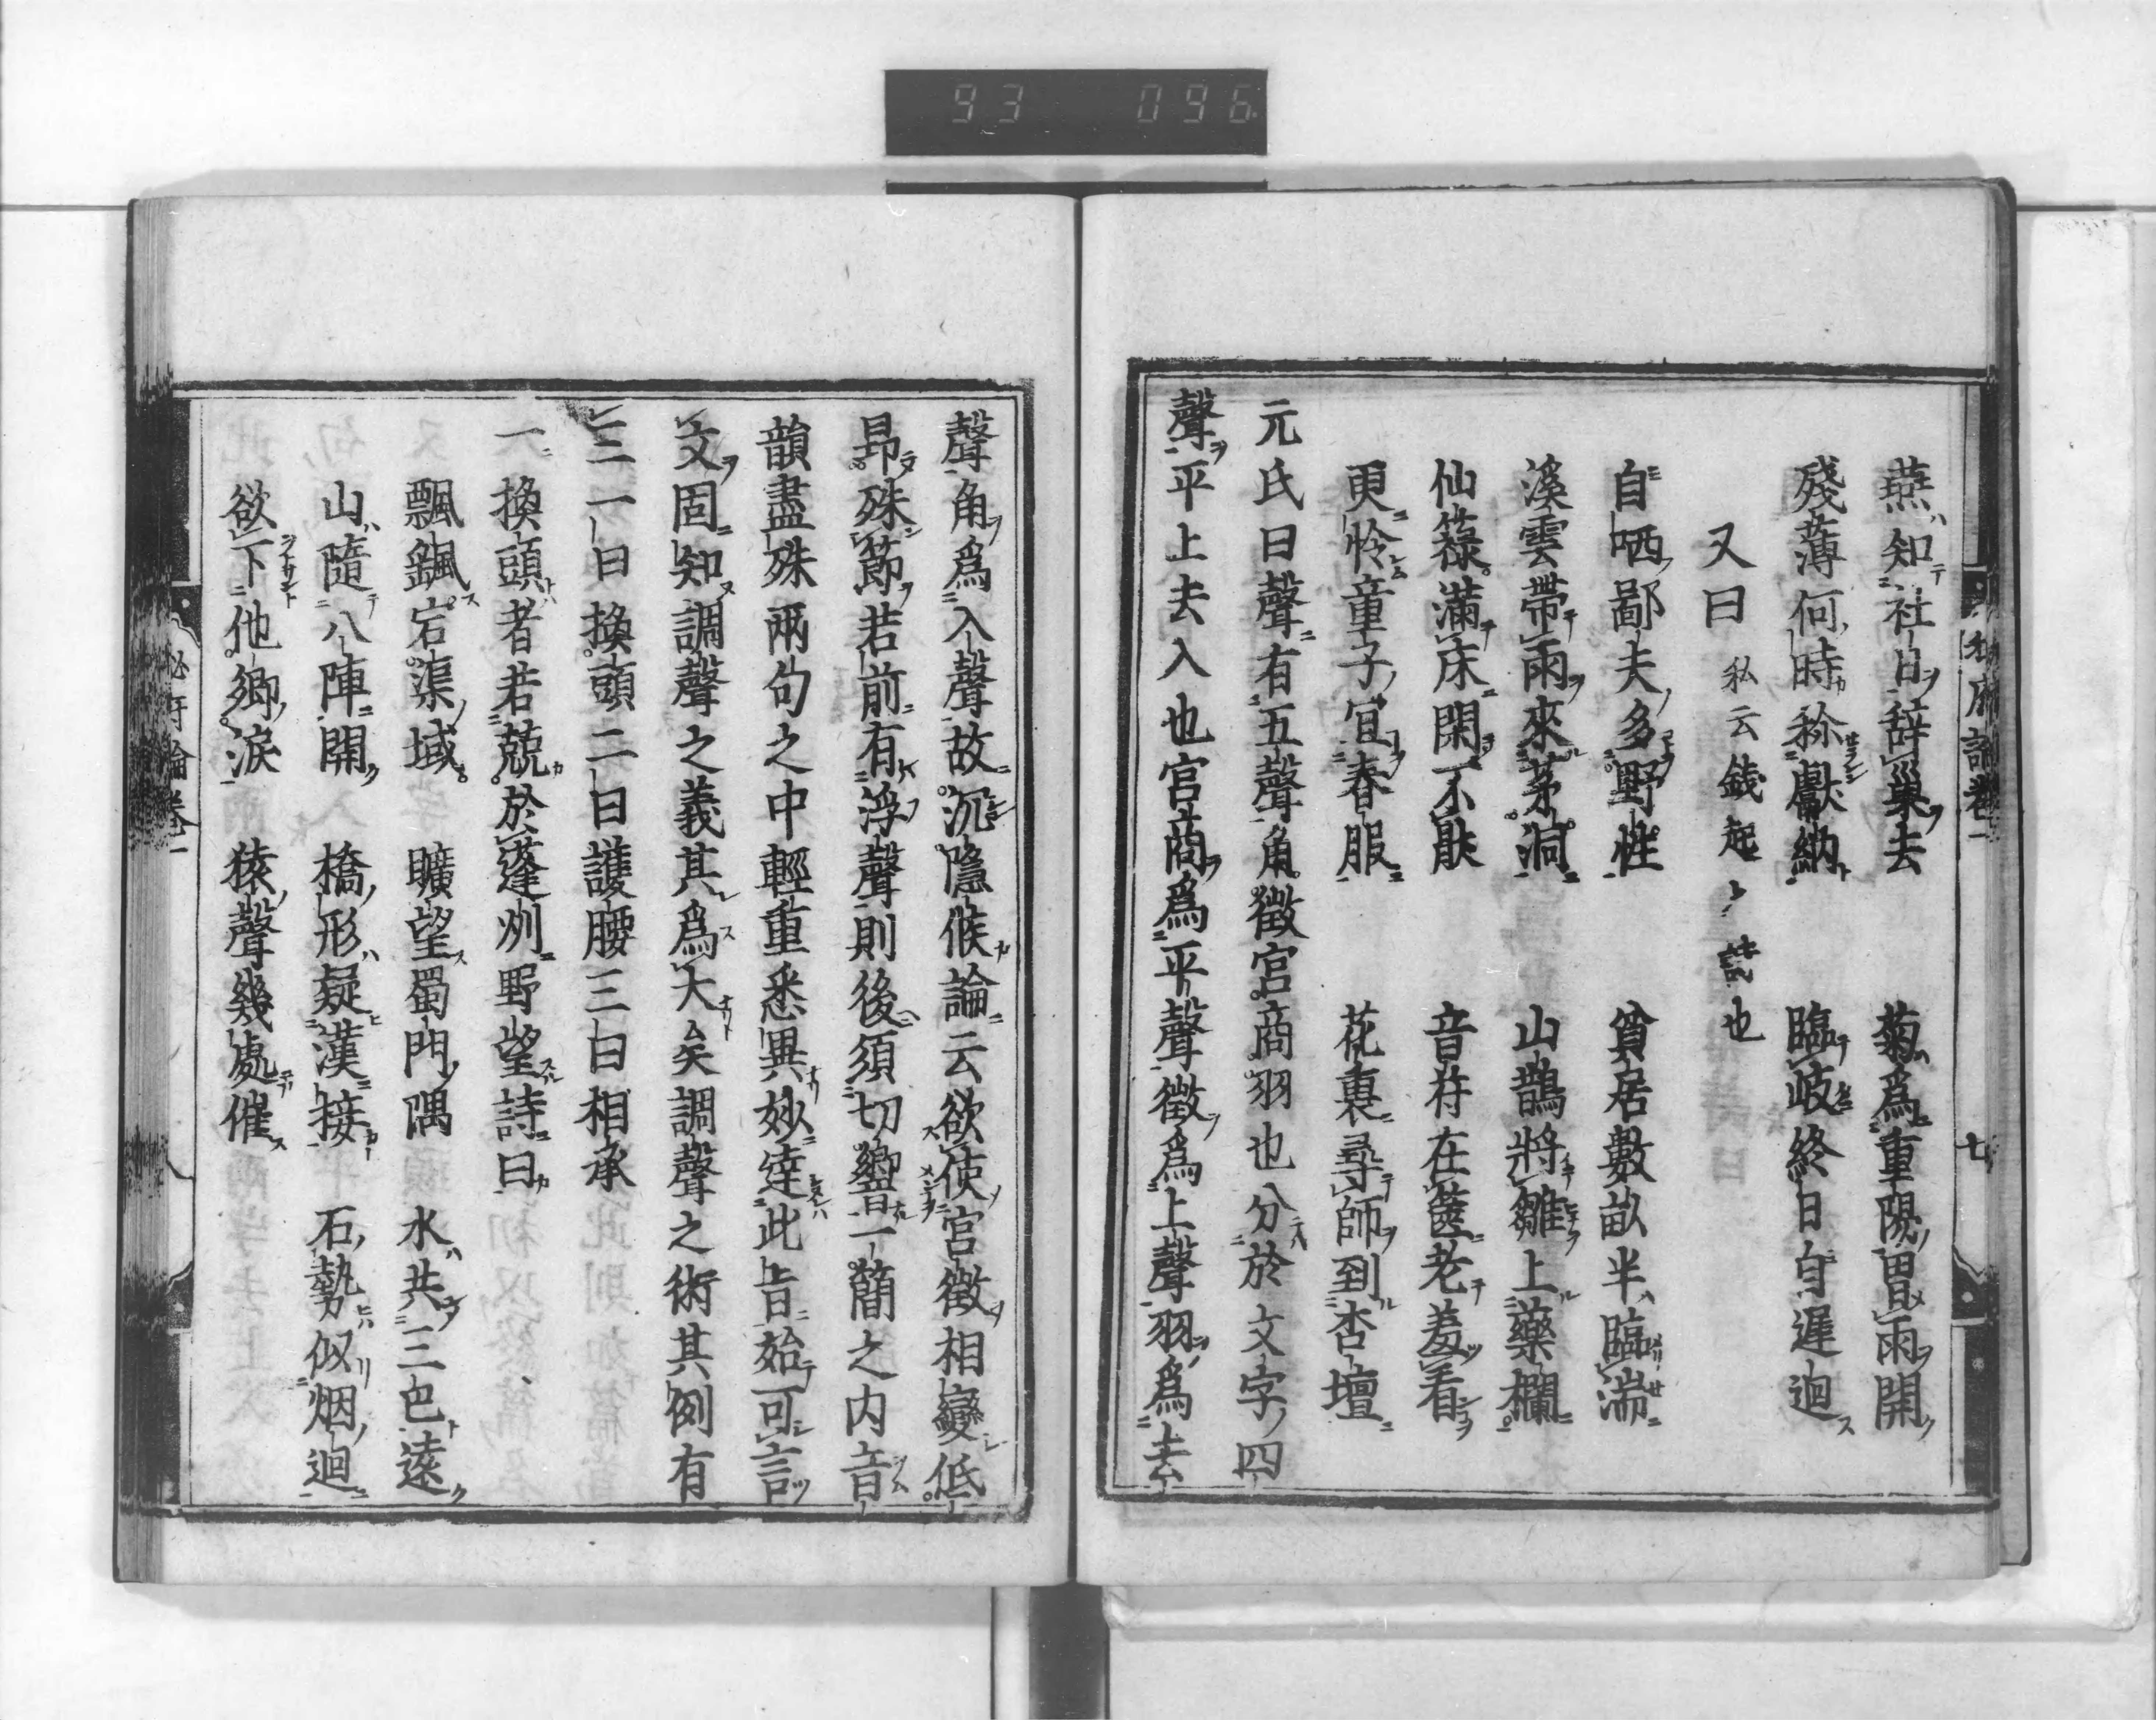 93 096
燕知社日辞巢去 菊爲重陽冒雨開
殘薄何時稱獻納 臨岐終日自遲迴
又曰 私云錢起之詩也
自哂鄙夫多野性 貧居數畝半臨湍
溪雲帶雨來茅洞 山鵲將雛上藥欄
仙籙滿床閑不厭 音符在篋老羞看
更怜童子宜春服 花裏尋師到杏壇
元氏曰聲有五聲角徵宮商羽也分於文字四
聲平上去入也宮商爲平聲徵爲上聲羽爲去
七
聲角爲入聲故沉隱候論云欲使宮徵相變低
昂殊節若前有浮聲則後須切響一蕳之内音
韻盡殊兩句之中輕重悉異妙達此旨始可言
文固知調聲之義其爲大矣調聲之術其例有
三一曰換頭二曰護腰三曰相承
一換頭者若兢於蓬州野望詩曰
飄飄宕渠域 曠望蜀門隅 水共三巴遠
山隨八陣開 橋形疑漢接 石勢似烟迴
欲下他鄉淚 猿聲幾處催
秘府論卷一